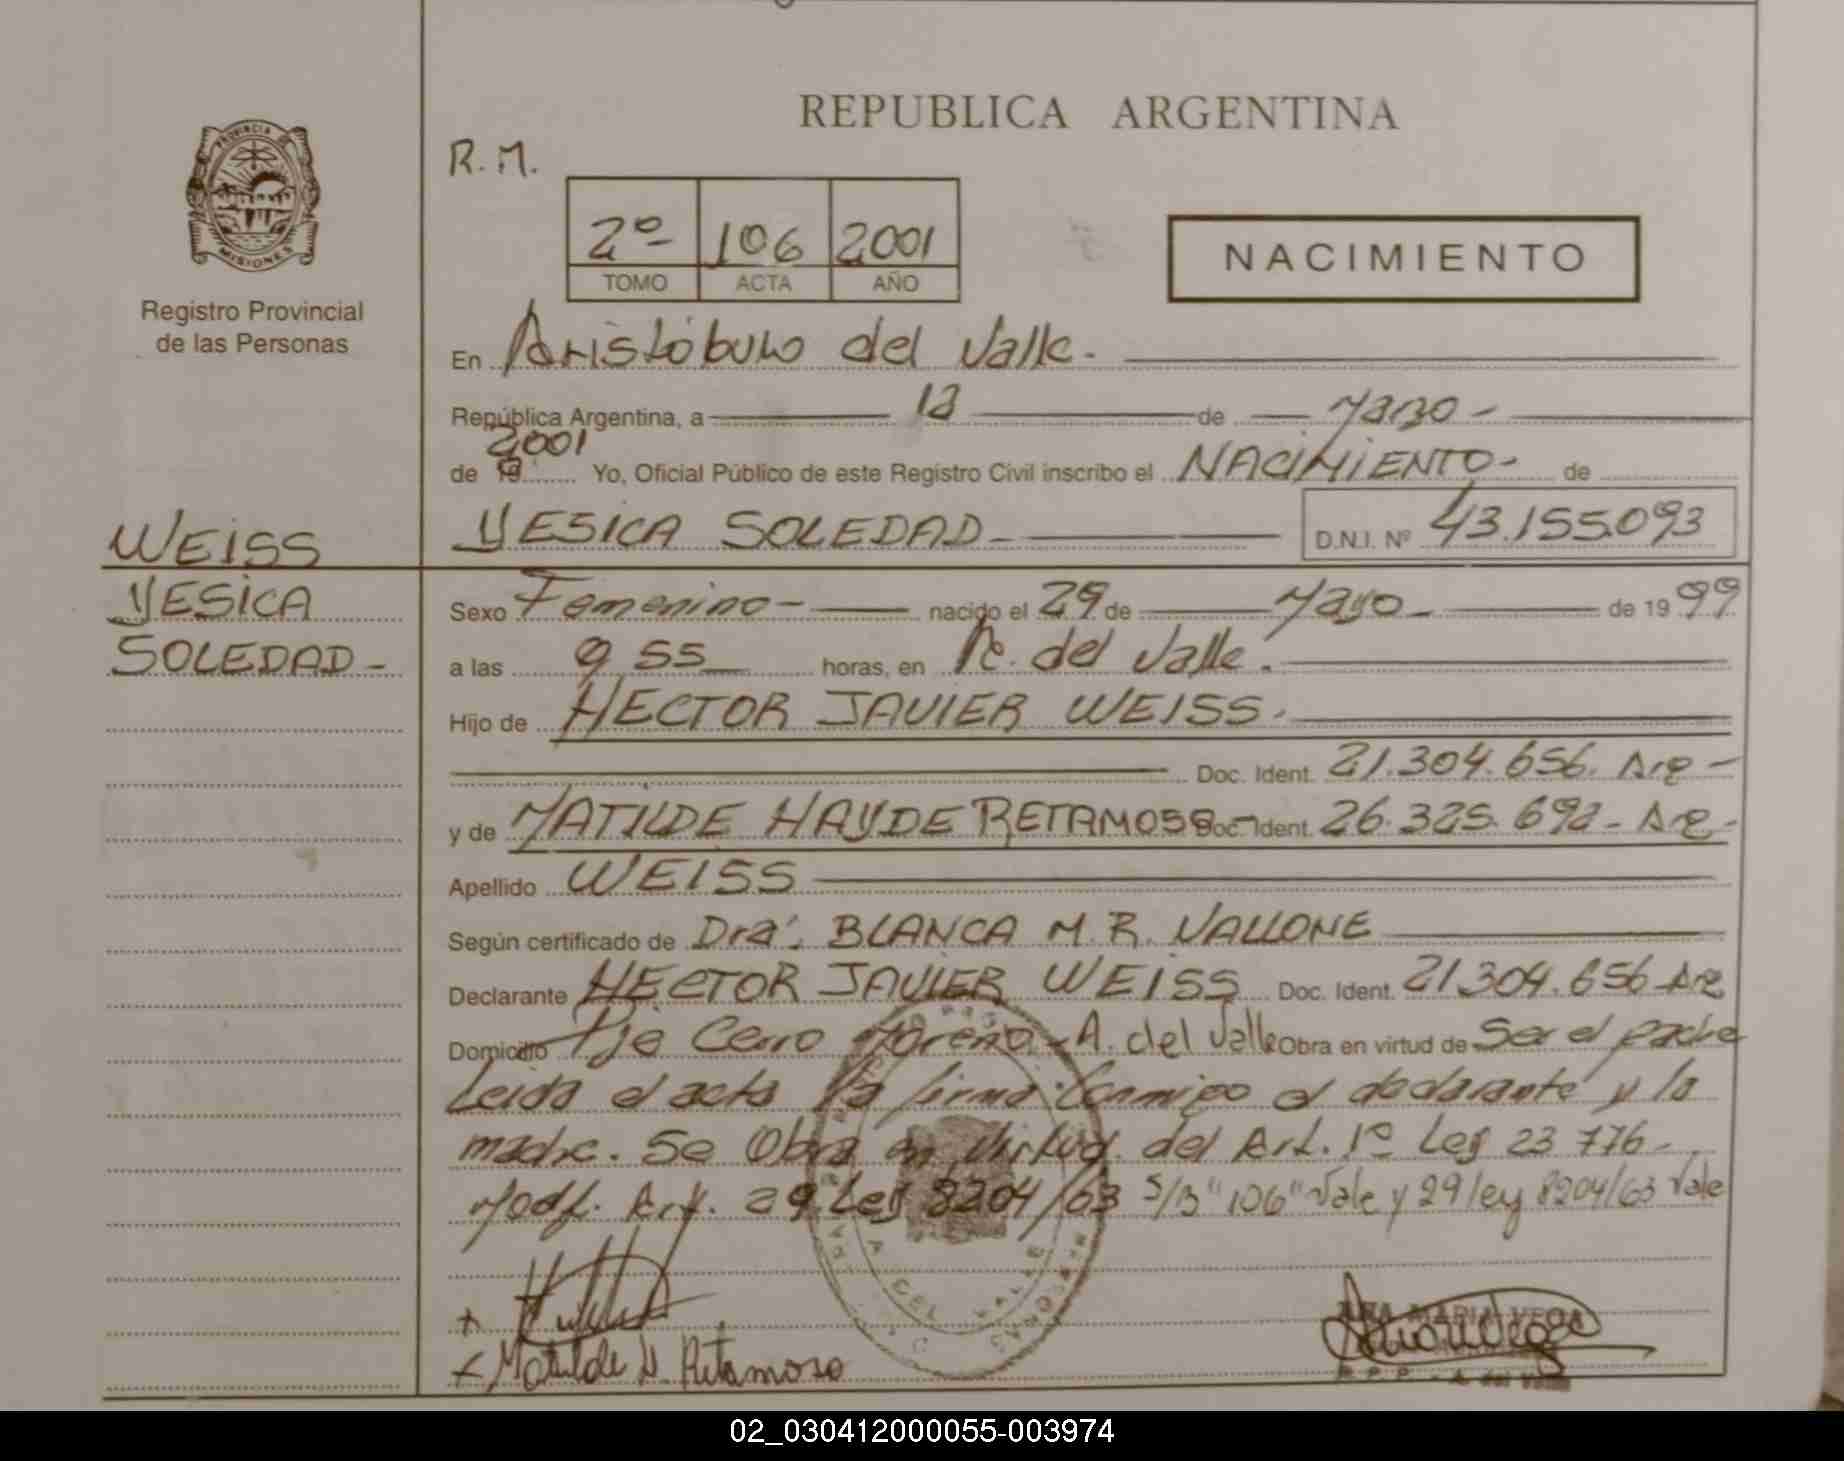 REPUBLICA ARGENTINA
PROVINCIA DE
MISIONES
Registro Provincial
de las Personas
R.M.
2º 106 2001
TOMO ACTA AÑO
NACIMIENTO
En Aristóbulo del Valle.
República Argentina, a 12 de Marzo
2001
de 19 Yo, Oficial Público de este Registro Civil inscribo el NACIMIENTO de
YESICA SOLEDAD D.N.I. Nº 43.155.093
WEISS
YESICA
SOLEDAD
Sexo Femenino nacido el 29 de Mayo de 1999
a las 9 55 horas, en A. del Valle.
Hijo de HECTOR JAVIER WEISS.
Doc. Ident. 21.304.656. Arg
y de MATILDE HAYDE RETAMOSO Doc. Ident. 26.325.692 Arg
Apellido WEISS
Según certificado de Dra. BLANCA M. R. VALLONE
Declarante HECTOR JAVIER WEISS Doc. Ident. 21.304.656 Arg
Domicilio Pje Cerro Moreno A. del Valle Obra en virtud de Ser el padre
Leida el acta la firma conmigo el declarante y la
madre. Se Obra en virtud del Art. 1º Ley 23 776
Modf. Art. 29 Ley 8204/63 S/B "106" Vale y 29 ley 8204/63 Vale
Matilde H. Retamoso
ANA MARIA VEGA
A. del Valle
02_030412000055-003974